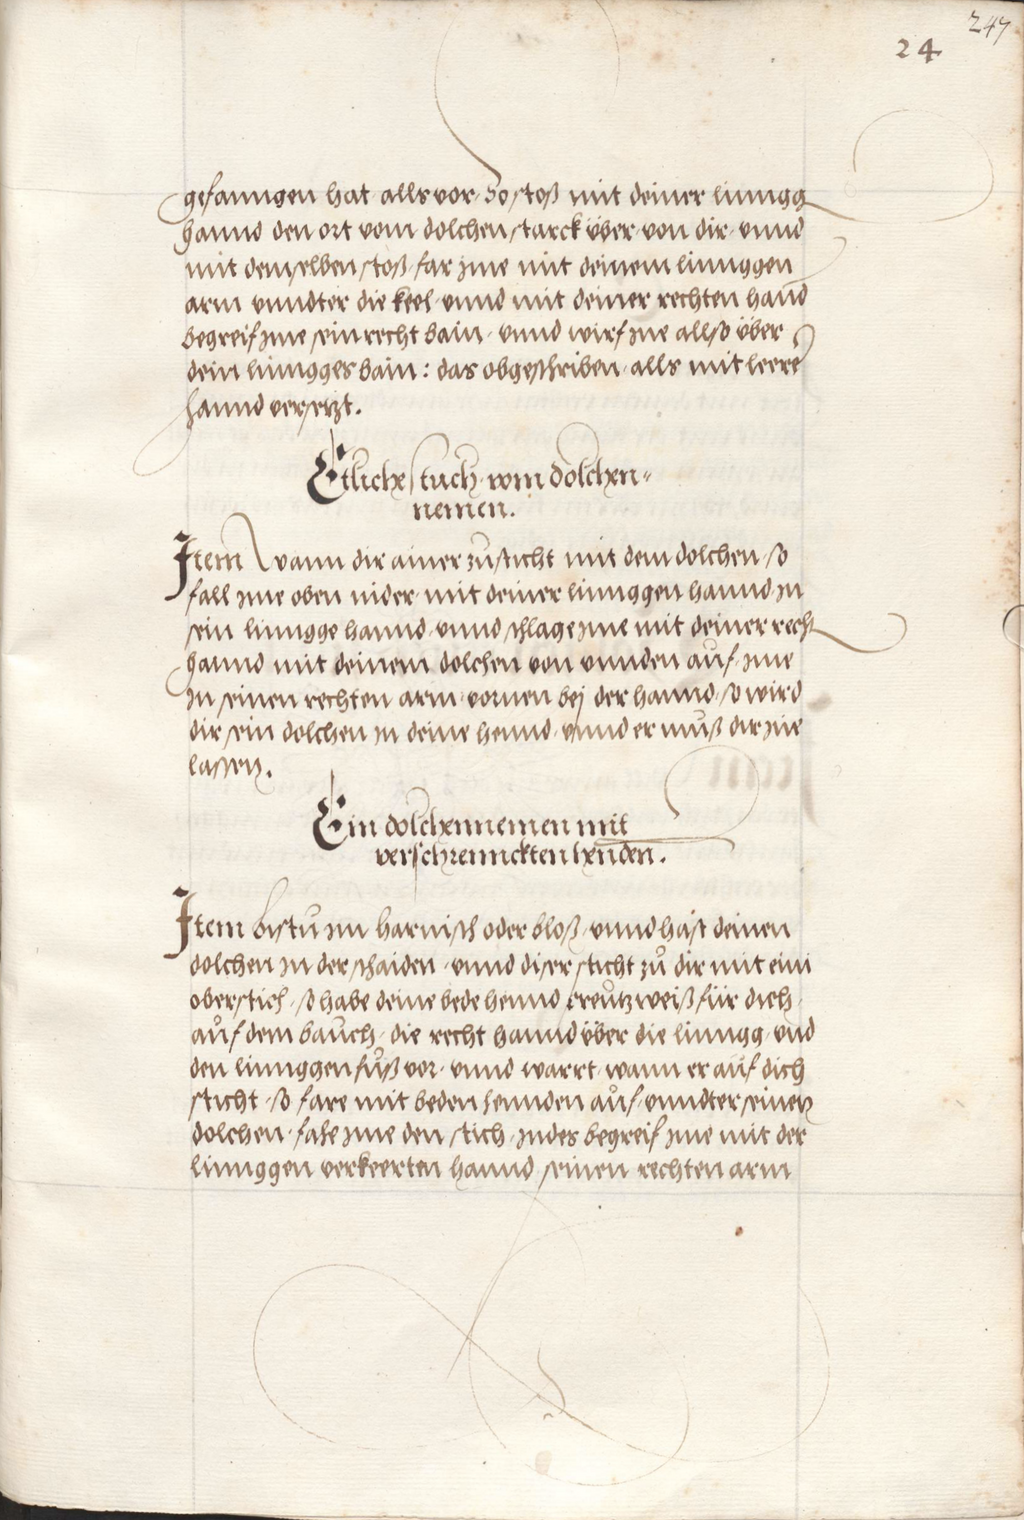 247
24
gefanngen hat alls vor. So stoß mit deiner linngg
hannd den ort vom dolchen starck über von dir vnnd
mit demselben stoß far jme mit deinem linnggen
arm vnndter die keel vnnd mit deiner rechten hand
begreif jme sein recht bain vnnd wirf jne allso über
dein linngges bain: das obgeschriben alls mit leerer
hannd versetzt.
Etliche stuch vom dolchen-
nemen.
Item wann dir ainer zusticht mit dem dolchen so
fall jme oben nider mit deiner linnggen hannd in
sein lingge hannd vnnd schlage jme mit deiner recht
hannd mit deinem dolchen von vnnden auf jme
in seinen rechten arm vornen bej der hannd so wird
dir sein dolchen in deine hennd vnnd er muß dir jne
lassen.
Ein dolchennemen mit
verschrennckten henden.
Item bistu im harnisch oder bloß vnnd hast deinen
dolchen in der schaiden vnnd diser sticht zu dir mit eim
oberstich so habe deine bede hennd creutzweiß für dich
auf dem bauch die recht hannd über die linngg vnd
den linnggen fuß vor vnnd warrt wann er auf dich
sticht so fare mit beden hennden auf vnndter seinen
dolchen fahe jme den stich indes begreif jme mit der
linnggen verkeerten hannd seinen rechten arm